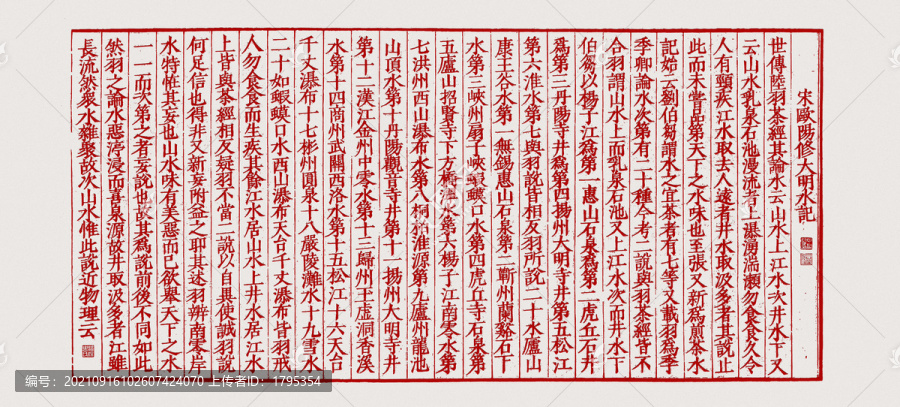 宋歐陽修大明水記
世傳陸羽茶經其論水云山水上江水次井水下又
云山水乳泉石池漫流者上瀑湧湍瀨勿食食久令
人有頸疾江水取去人遠者井水取汲多者其說止
此而未嘗品第天下之水味也至張又新爲煎茶水
記始云劉伯芻謂水之宜茶者有七等又載羽爲李
季卿論水次第有二十種今考二說與羽茶經皆不
合羽謂山水上而乳泉石池又上江水次而井水下
伯芻以楊子江爲第一惠山石泉爲第二虎丘石井
爲第三丹陽寺井爲第四揚州大明寺井第五松江
第六淮水第七與羽說皆相反羽所說二十水廬山
康王谷水第一無錫惠山石泉第二蘄州蘭谿石下
水第三峽州扇子峽蝦蟆口水第四虎丘寺石泉第
五廬山招賢寺下方橋潭水第六楊子江南零水第
七洪州西山瀑布水第八桐柏淮源第九廬州龍池
山頂水第十丹陽觀音寺井第十一揚州大明寺井
第十二漢江金州中零水第十三歸州玉虛洞香溪
水第十四商州武關西洛水第十五松江十六天台
千丈瀑布十七郴州圓泉十八嚴陵灘水十九雪水
二十如蝦蟆口水西山瀑布天台千丈瀑布皆羽戒
人勿食食而生疾其餘江水居山水上井水居江水
上皆與茶經相反疑羽不當二說以自異使誠羽說
何足信也得非又新妄附益之耶其述羽辨南零岸
水特怪其妄也山水味有美惡而已欲舉天下之水
一一而次第之者妄說也故其爲說前後不同如此
然羽之論水惡渟浸而喜泉源故井取汲多者江雖
長流然衆水雜聚故次山水惟此說近物理云
编号：20210916102607424070 上传者ID：1795354